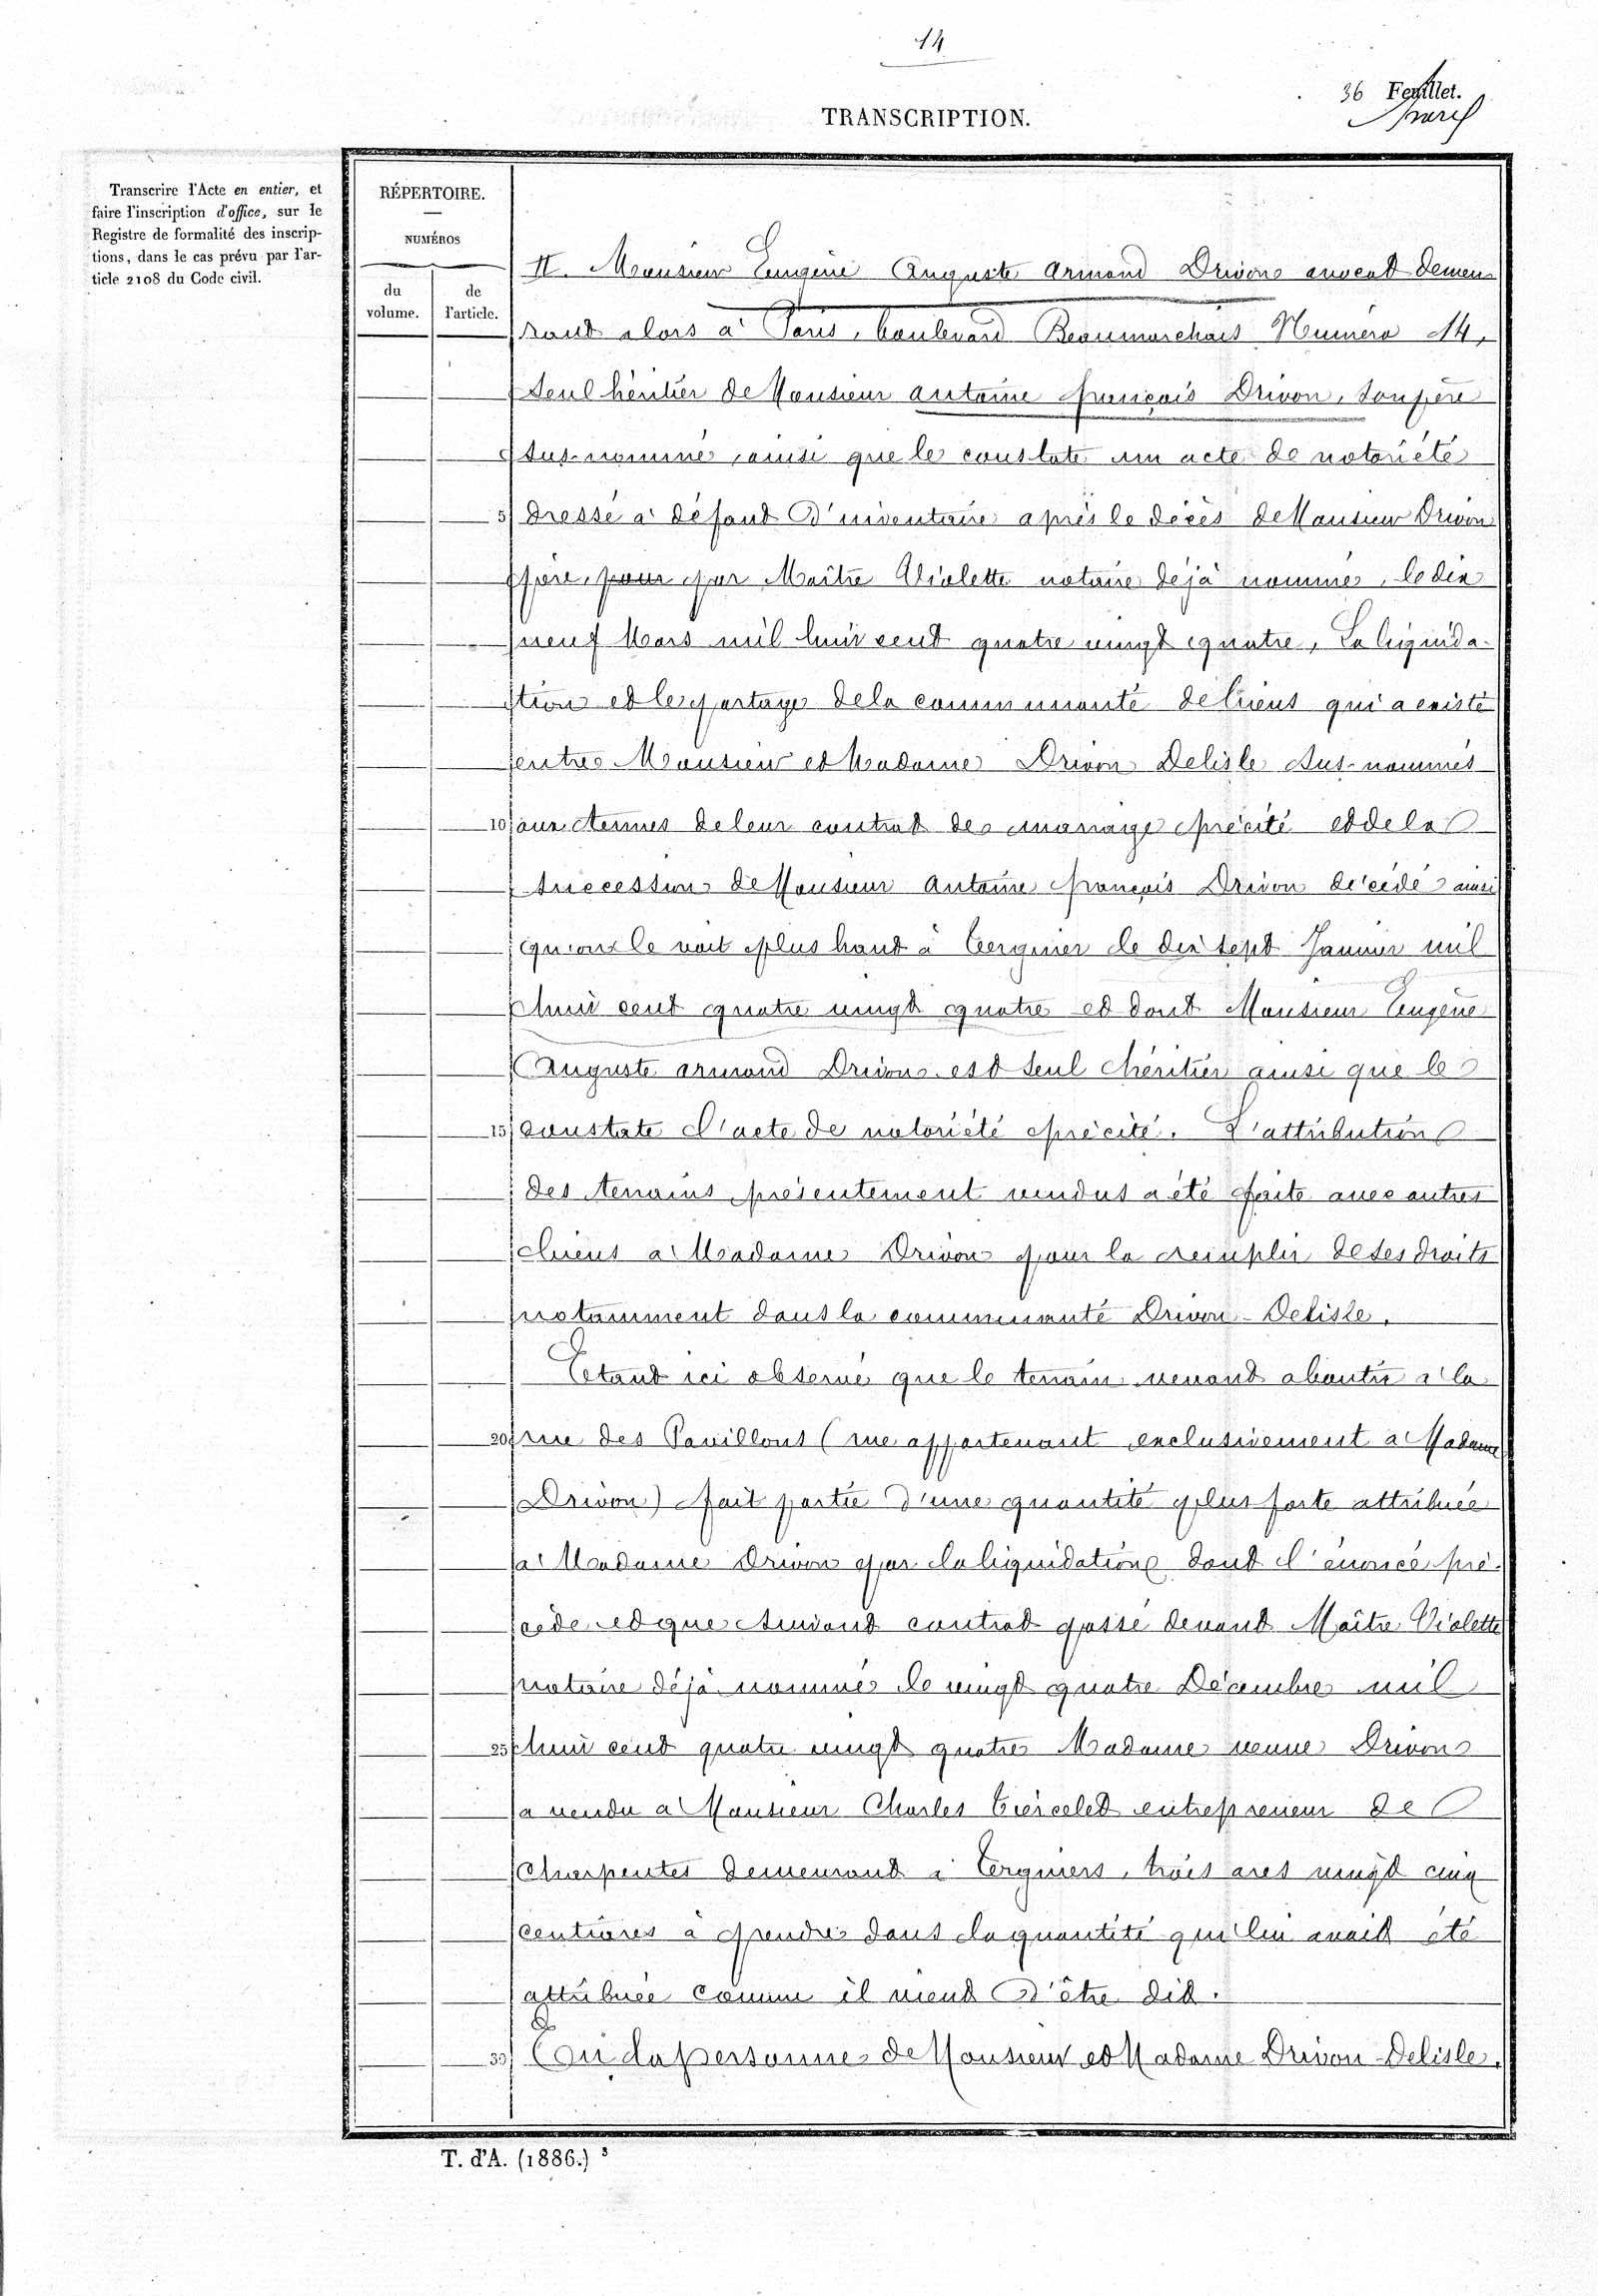 14
36 Feuillet.
TRANSCRIPTION.
Transcrire l'Acte en entier, et
faire l'inscription d'office, sur le
Registre de formalité des inscrip-
tions, dans le cas prévu par l'ar-
ticle 2108 du Code civil.
RÉPERTOIRE.
NUMÉROS
du
volume.
de
l'article.
II. Monsieur Eugène Auguste Armand Drivon avocat demeu
rant alors à Paris, boulevard Beaumarchais Numéro 14,
seul héritier de Monsieur Antoine françois Drivon, son père
sus-nommé, ainsi que le constate un acte de notoriété
5 dressé à défaut d'inventaire après le décès de Monsieur Drivon
père, pour par Maître Violette notaire déjà nommé, le dix
neuf Mars mil huit cent quatre vingt quatre, La liquida-
tion et le partage de la communauté de biens qui a existé
entre Monsieur et Madame Drivon Delisle sus-nommés
10 aux termes de leur contrat de mariage précité et de la
succession de Monsieur Antoine françois Drivon décédé ainsi
qu'on le voit plus haut à Tergnier le dix sept Janvier mil
huit cent quatre vingt quatre et dont Monsieur Eugène
Auguste Armand Drivon est seul héritier ainsi que le
15 constate l'acte de notoriété précité. L'attribution
des terrains présentement vendus a été faite avec autres
biens à Madame Drivon pour la remplir de ses droits
notamment dans la communauté Drivon-Delisle.
Etant ici observé que le terrain venant aboutir à la
20 rue des Pavillons (rue appartenant exclusivement à Madame
Drivon) fait partie d'une quantité plus forte attribuée
à Madame Drivon par la liquidation dont l'énoncé pré-
cède et que suivant contrat passé devant Maître Violette
notaire déjà nommé le vingt quatre Décembre mil
25 huit cent quatre vingt quatre Madame veuve Drivon
a vendu à Monsieur Charles Tiercelet entrepreneur de
Charpentes demeurant à Tergniers, trois ares vingt cinq
centiares à prendre dans la quantité qui lui avait été
attribuée comme il vient d'être dit.
30 En la personne de Monsieur et Madame Drivon-Delisle,
T. d'A. (1886.) 3